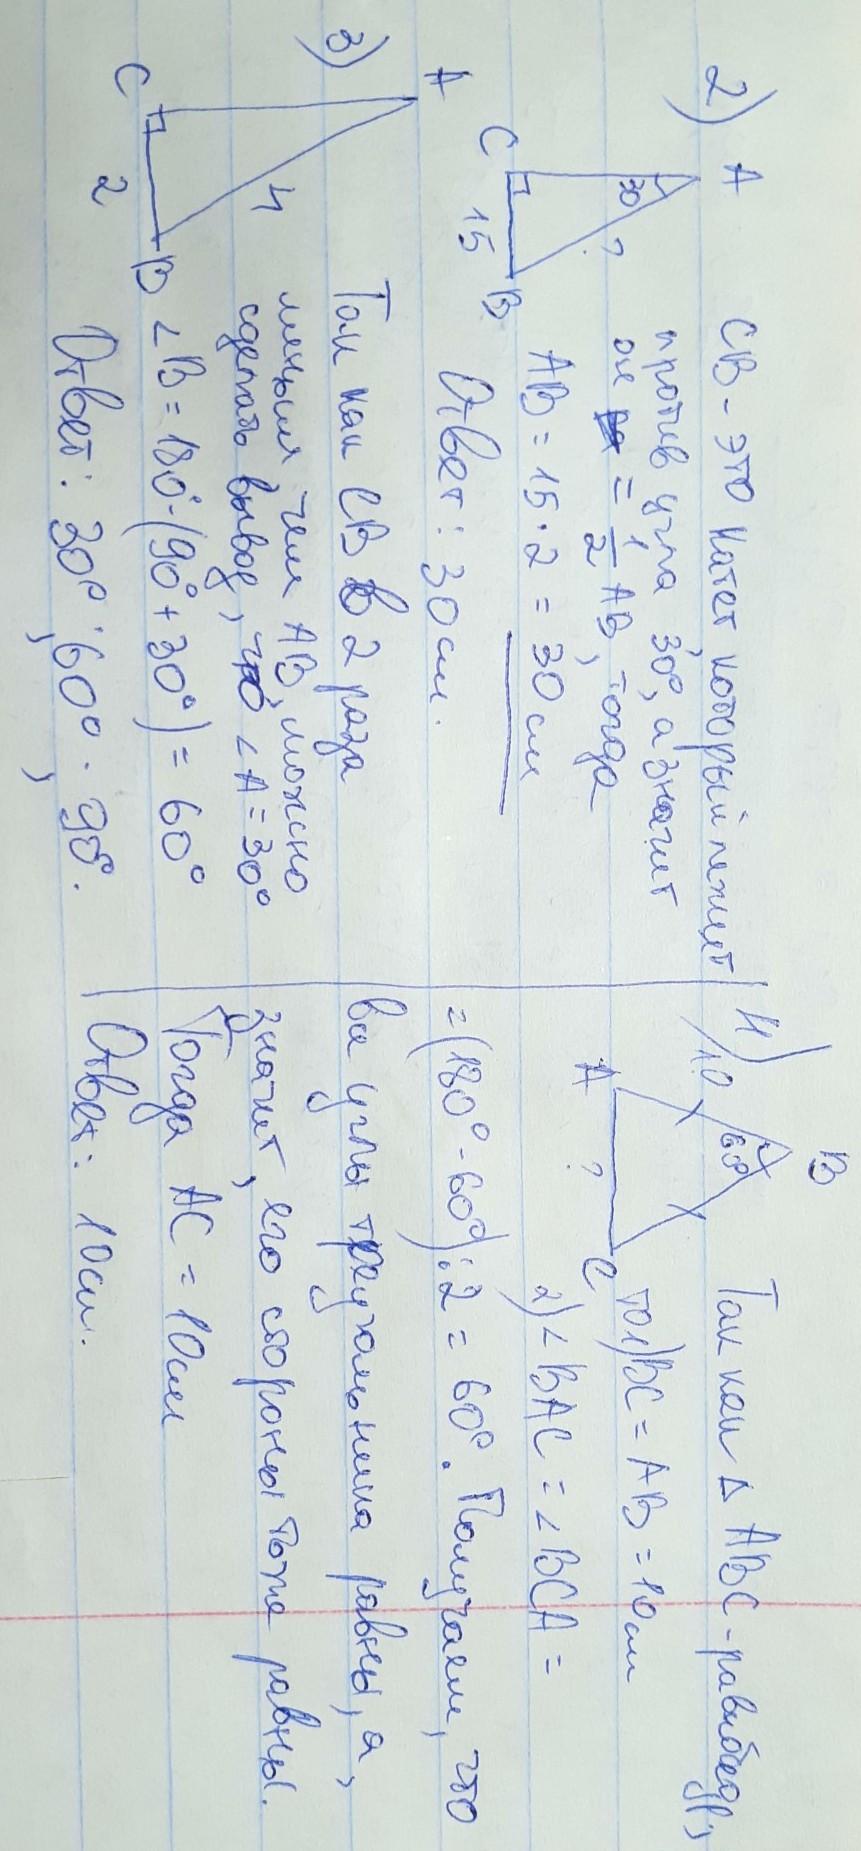 2) A
30
?
C 15 B
СВ - это катет, который лежит
против угла 30°, а значит
он = 1/2 AB, тогда
AB = 15 · 2 = 30 см
Ответ: 30 см.
3) A
4
C 2 B
Так как CB в 2 раза
меньше, чем AB, можно
сделать вывод, что ∠A = 30°
∠B = 180° - (90° + 30°) = 60°
Ответ: 30°; 60°; 90°.
4) B
10 60°
A ? C
Так как Δ ABC - равнобедр,
то 1) BC = AB = 10 см
2) ∠BAC = ∠BCA =
= (180° - 60°) : 2 = 60°. Получаем, что
все углы треугольника равны, а,
значит, его стороны тоже равны.
Тогда AC = 10 см
Ответ: 10 см.